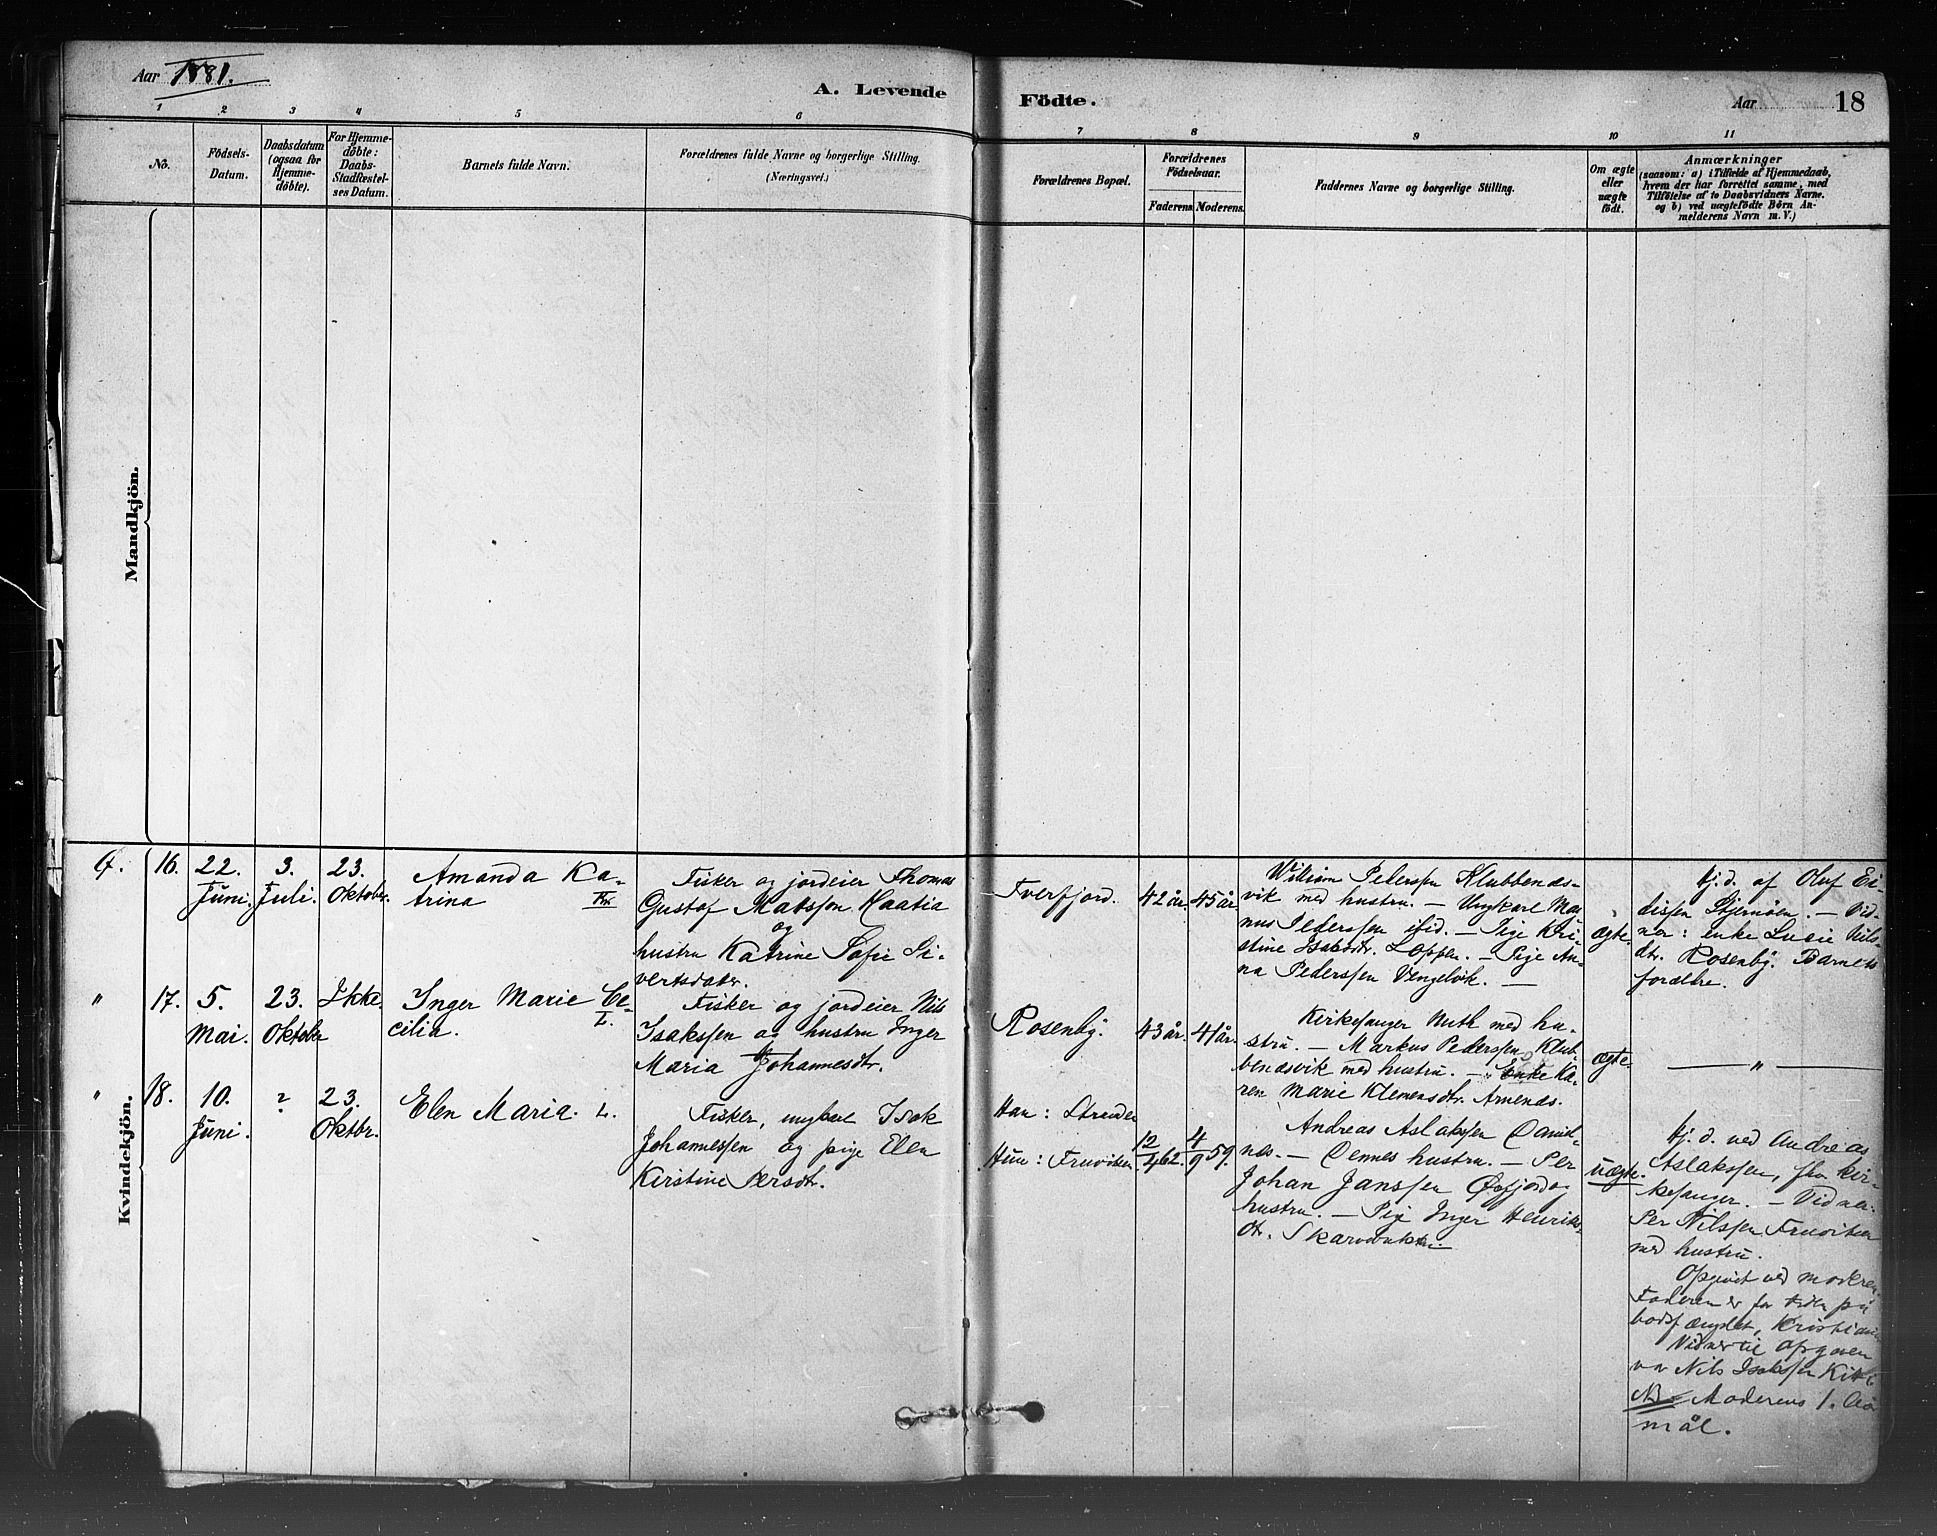 Aar 1881.
A. Levende
Födte.
Aar
18
1 2 3 4 5 6 7 8 9 10 11
Nô.
Födsels-
Datum.
Daabsdatum
(ogsaa for
Hjemme-
döbte).
For Hjemme-
döbte:
Daabs-
Stadfæstel-
ses Datum.
Barnets fulde Navn.
Forældrenes fulde Navne og borgerlige Stilling.
(Næringsvei.)
Forældrenes Bopæl.
Forældrenes
Födselsaar.
Faderens Moderens.
Faddernes Navne og borgerlige Stilling.
Om ægte
eller
uægte
födt.
Anmærkninger
(saasom: a) i Tilfælde af Hjemmedaab,
hvem der har forrettet samme, med
Tilföielse af to Daabsvidners Navne.
og b) ved uægtefödte Börn An-
melderens Navn m. V.)
Mandkjön.
Kvindekjön.
16.
22.
Juni.
3.
Juli.
23.
Oktober.
Amanda Ka-
trina
Fisker og jordeier Thomas
Gustaf Matssen Kaatia
og
hustru Katrine Sofie Si-
vertsdatr.
Tverfjord.
42 år.
45 år
William Pederssen Klubbends-
vik med hustru. — Ungkarl Mag-
nus Pederssen ibid. — Pige Kri-
stine Isaksdtr. Loppen. — Pige An-
na Pederssen Vengelvik. —
ægte.
Hj. d. af Oluf Ei-
dissen Stjernöen. — Vid-
ner: enke Lucie Nils-
dtr. Rosenbj. Barnets
forældre.
" 17.
5.
Mai.
23.
Oktober
Ikke.
Inger Marie Ce-
cilia.
L.
Fisker og jordeier Nils
Isakssen og hustru Inger
Maria Johannesdtr.
Rosenbj.
43 år.
41 år.
Kirkesanger Muth med hu-
stru. — Markus Pederssen Klub-
bendsvik med hustru. — Enke Ka-
ren Marie Klemensdtr. Arnends.
ægte.
— " —
" 18.
10.
Juni.
?
23.
Oktbr.
Elen Maria. L.
Fisker, ungkarl Isak
Johannessen og pige Ellen
Kirstine Persdtr.
Han:
Hun:
12/4 62.
4/9 59.
Andreas Aslakssen Daniel-
nes. — Dennes hustru. — Per
Johan Janssen Øxfjord og
hustru. — Pige Inger Henriks-
dtr. Skarvbukten.
uægte.
Hj. d. ved Andreas
Aslakssen, fhv. kir-
kesanger. — Vidner.
Per Nilssen
med hustru.
Opgivet ved moderen.
Faderen er for tiden på
bodsfængslet, Kristiania
Vidner til opgaven
var Nils Isakssen
NB Moderens 1. leier-
mål.